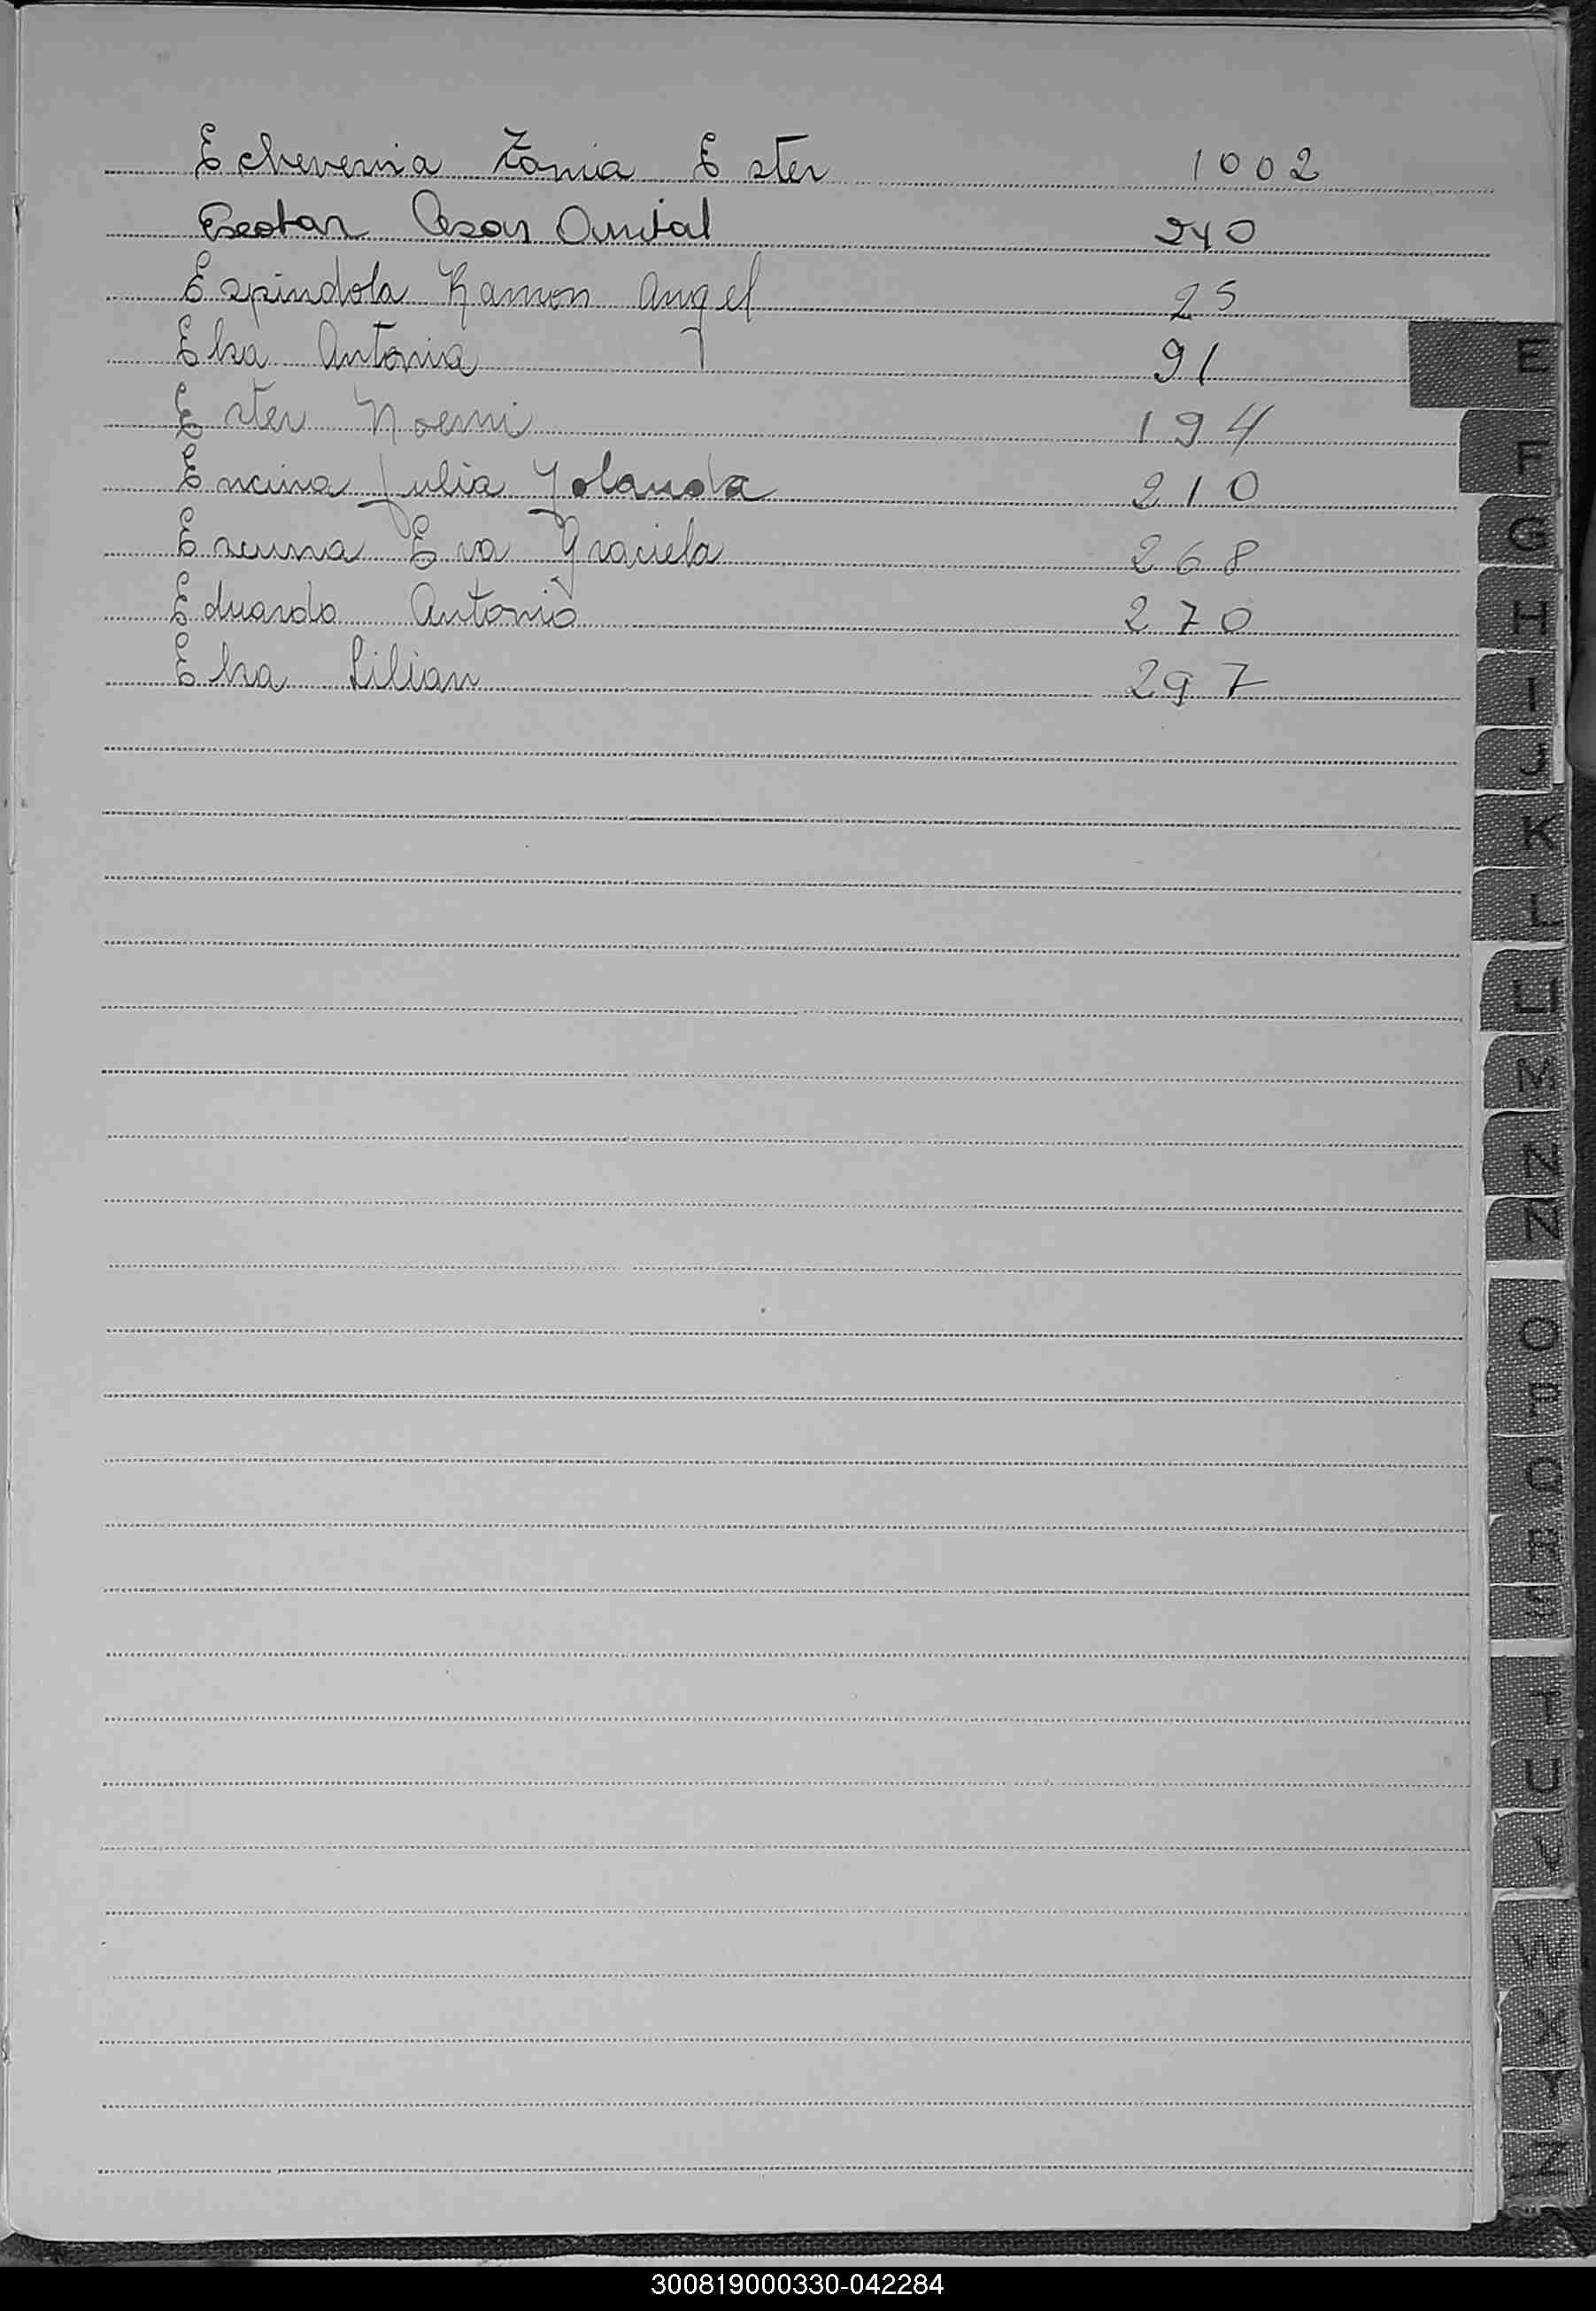 Echeverria Zania Ester 1002
Escobar Cesar Anibal 240
Espindola Ramon Angel 25
Elsa Antonia 91
Ester Noemi 194
Encina Julia Yolanda 210
Eva Graciela 268
Eduardo Antonio 270
Elsa Lilian 297
E
F
G
H
I
J
K
L
LL
M
N
Ñ
O
P
Q
R
S
T
U
V
W
X
Y
Z
300819000330-042284